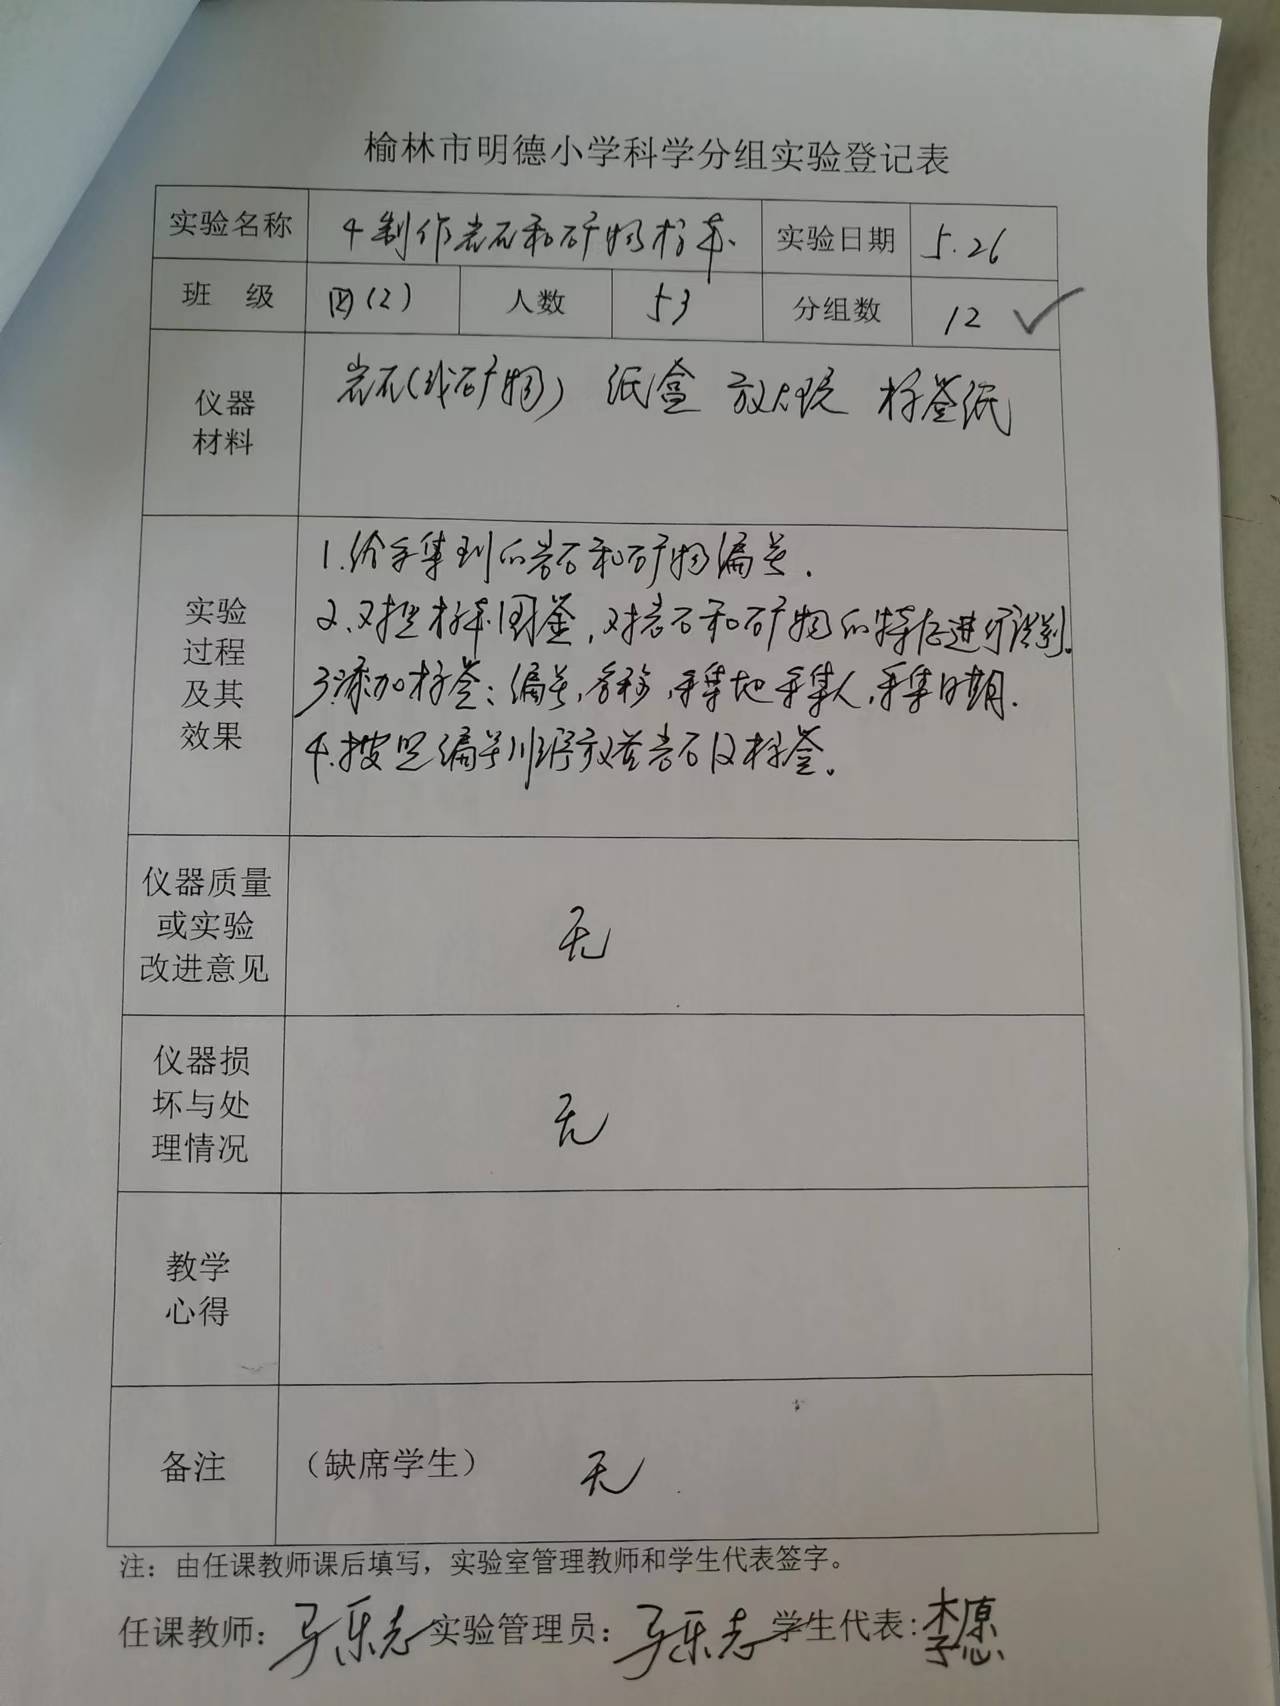 榆林市明德小学科学分组实验登记表
实验名称 4制作岩石和矿物标本. 实验日期 5.26
班 级 四(2) 人数 53 分组数 12 ✓
仪器材料 岩石(或矿物) 纸盒 放大镜 标签纸
实验过程及其效果
1.给采集到的岩石和矿物编号.
2.对照标本图鉴,对岩石和矿物的特征进行识别.
3.添加标签:编号,名称,采集地 采集人,采集日期.
4.按照编号顺序放置岩石及标签。
仪器质量或实验改进意见 无
仪器损坏与处理情况 无
教学心得
备注 (缺席学生) 无
注：由任课教师课后填写，实验室管理教师和学生代表签字。
任课教师：马乐志 实验管理员：马乐志 学生代表:李愿